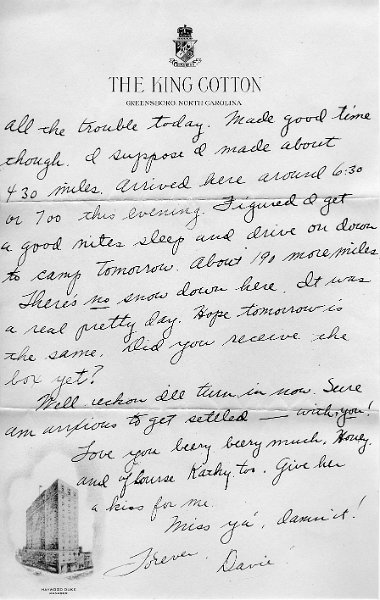 THE KING COTTON
GREENSBORO, NORTH CAROLINA
all the trouble today. Made good time
though. I suppose I made about
430 miles. Arrived here around 6:30
or 700 this evening. Figured I get
a good nites sleep and drive on down
to camp tomorrow. About 190 more miles.
There's no snow down here. It was
a real pretty day. Hope tomorrow is
the same. Did you receive the
box yet?
Well reckon I'll turn in now. Sure
am anxious to get settled — with you!
Love you beery beery much, Honey.
and of course Kathy too. Give her
a kiss for me.
Miss ya', damn it!
Forever, Davie
HAYWOOD DUKE
MANAGER